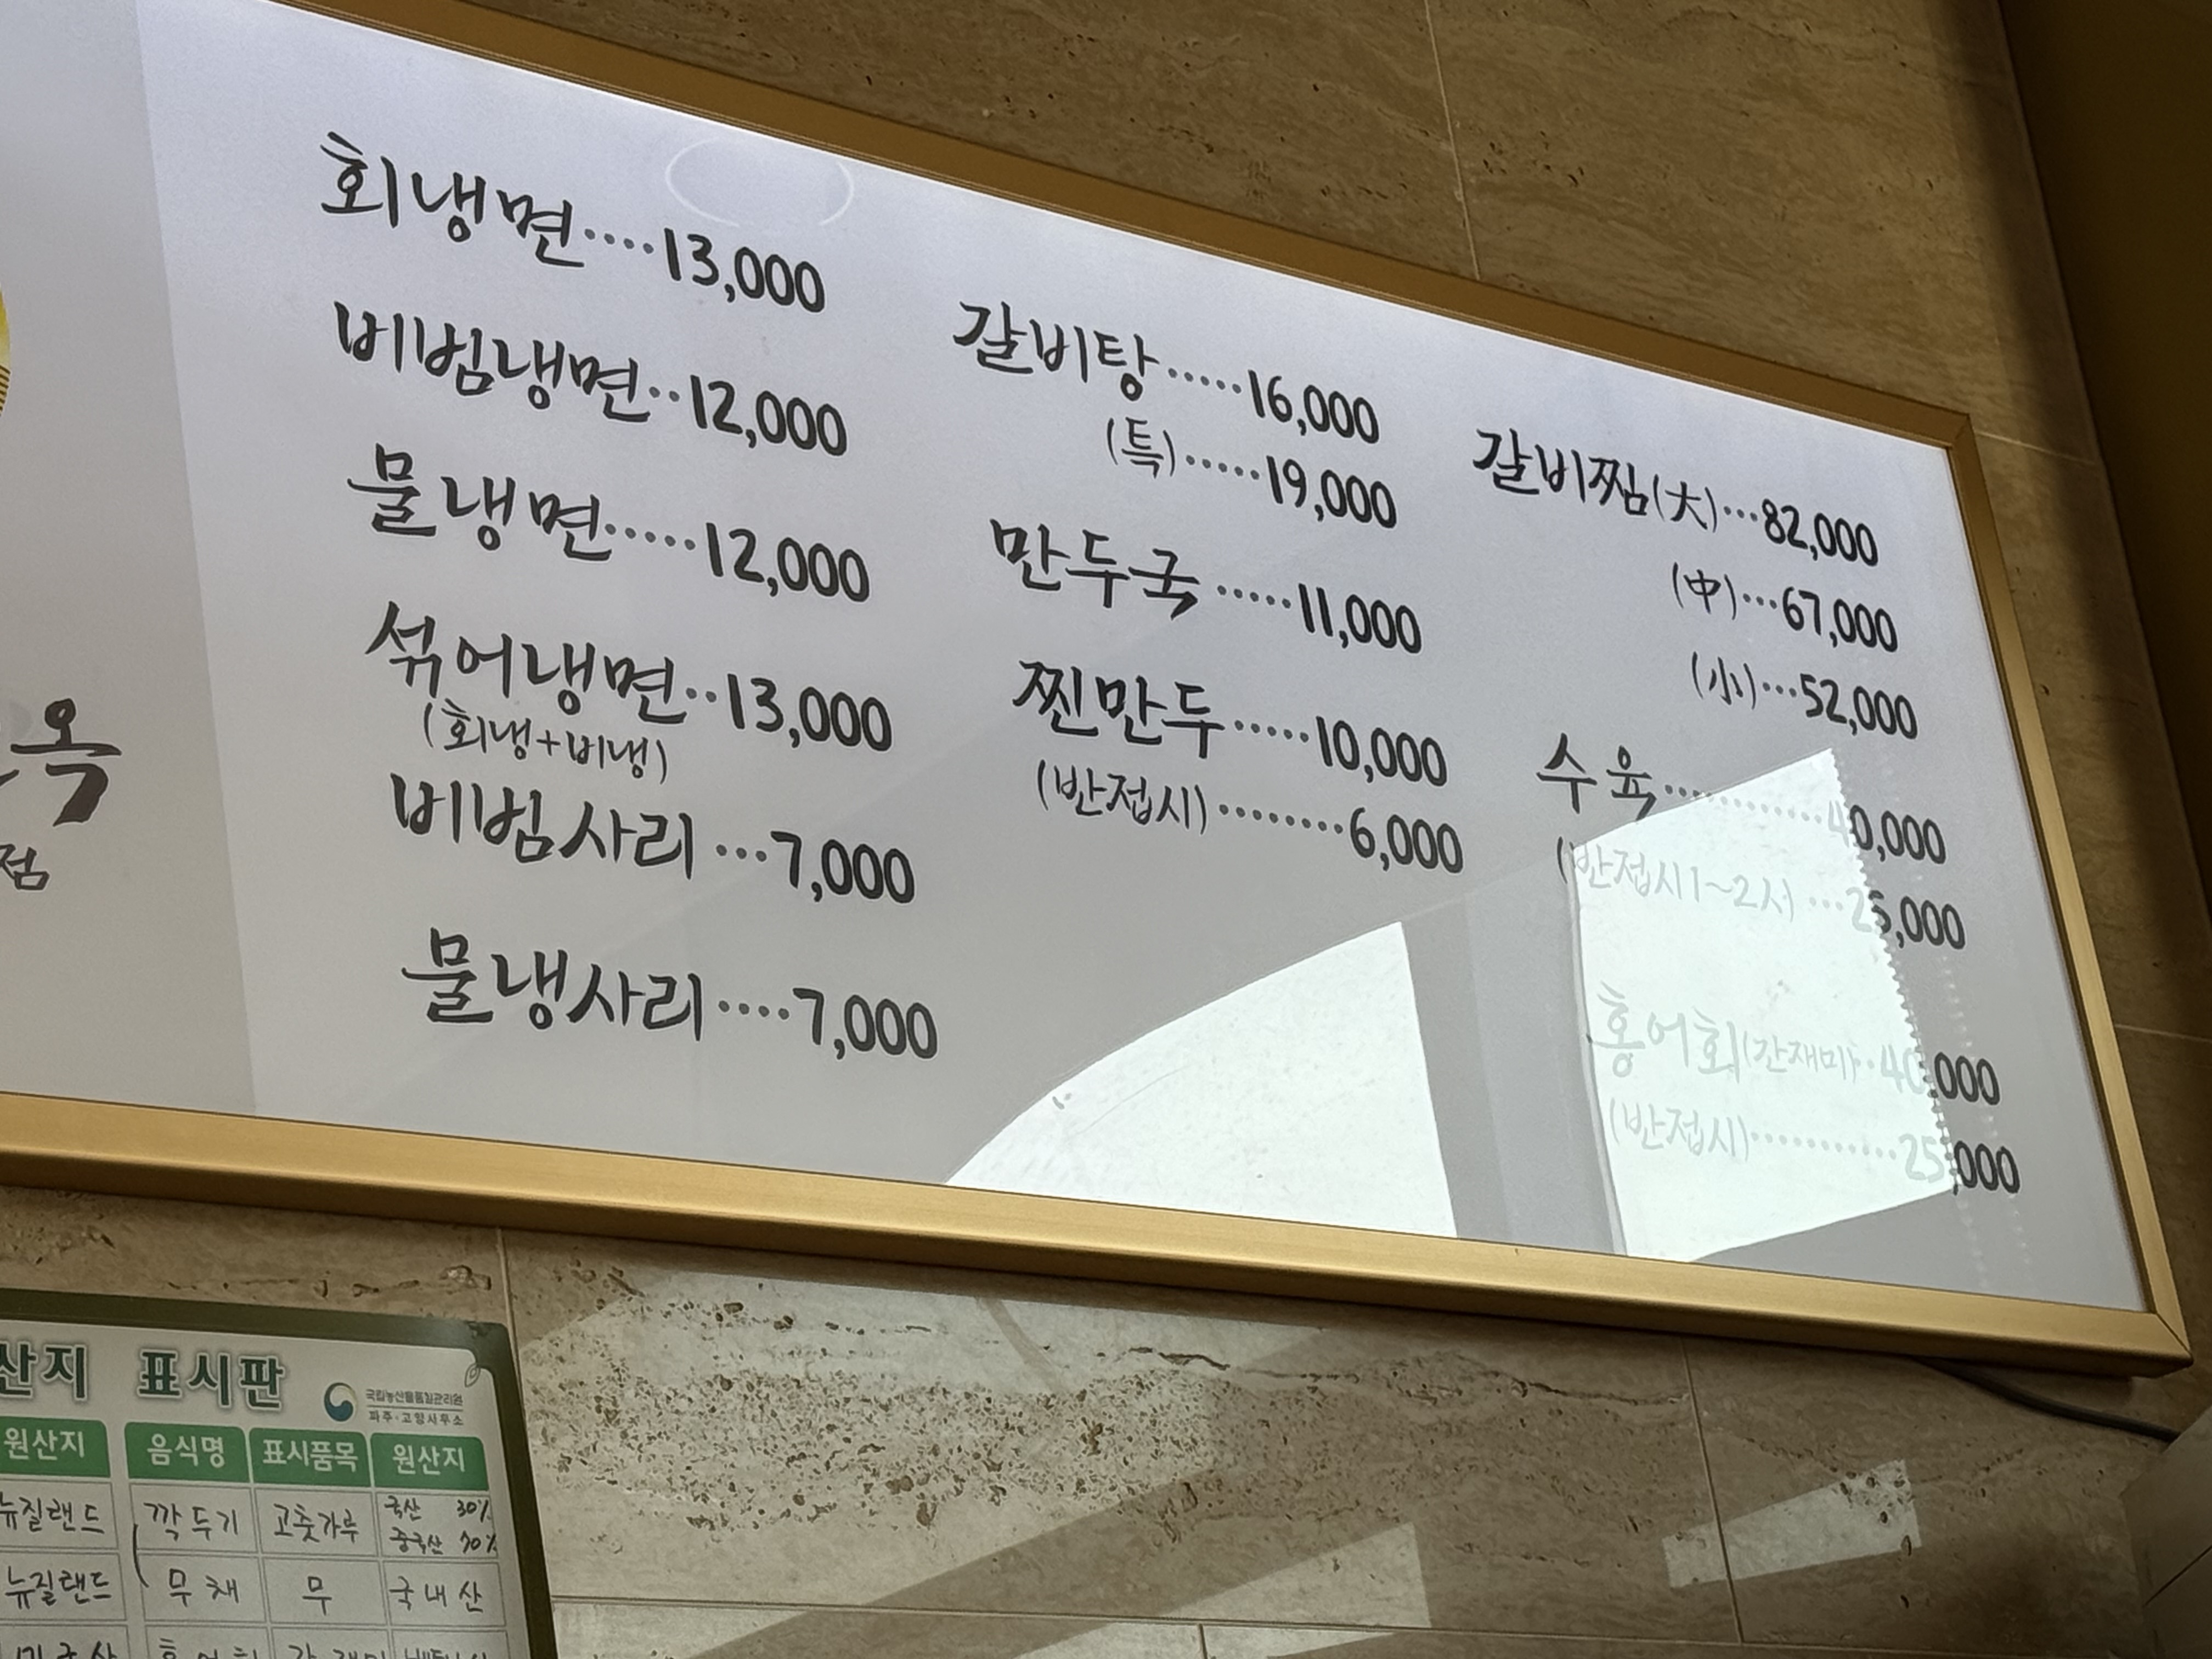 회냉면····13,000
비빔냉면··12,000
물냉면·····12,000
섞어냉면··13,000
(회냉+비냉)
비빔사리···7,000
물냉사리····7,000
갈비탕·····16,000
(특)·····19,000
만두국·····11,000
찐만두·····10,000
(반접시)········6,000
갈비찜(大)···82,000
(中)···67,000
(小)···52,000
수육···········40,000
(반접시1~2서)···25,000
홍어회(간재미)··40,000
(반접시)···········25,000
옥
점
산지 표시판
국립농산물품질관리원
파주·고양사무소
원산지 음식명 표시품목 원산지
뉴질랜드 깍두기 고춧가루 국산 30%
중국산 70%
뉴질랜드 무채 무 국내산